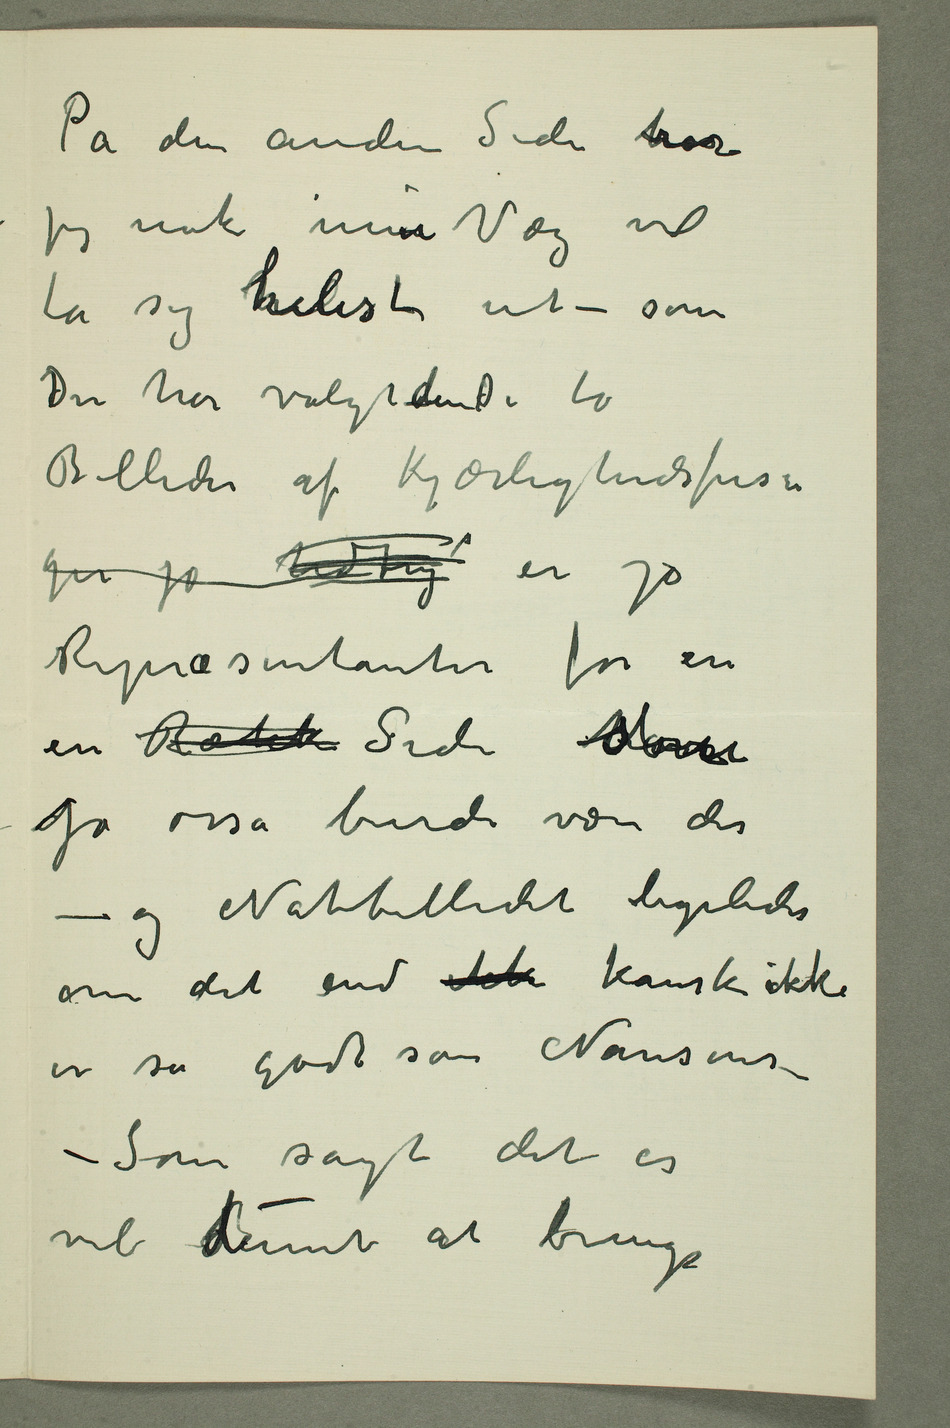 På den anden Side har
jeg nok min Væg vel
ta sig helest ut – som
Du har valgt den De to
Billeder af Kjærlighedsfrisen
gir jo er jo
Repræsentanter for en
en Række Side
Ja osså burde være der
— og Natbilledet ligeledes
om det end ikke kanske ikke
er så godt som Nansens –
– Som sagt det er
vel dumt at bringe